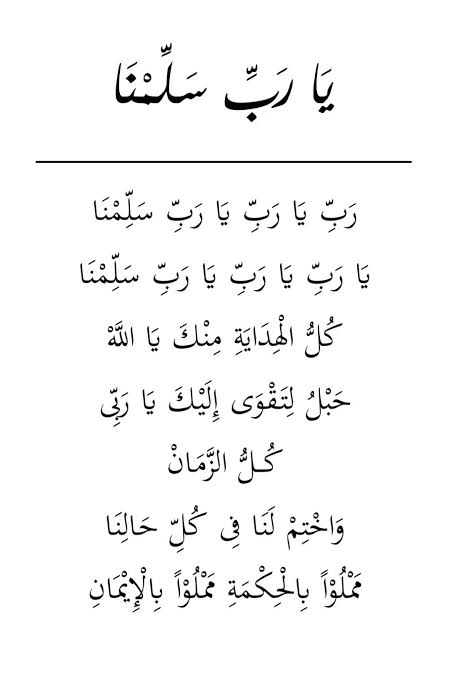 يَا رَبِّ سَلِّمْنَا
رَبِّ يَا رَبِّ يَا رَبِّ سَلِّمْنَا
يَا رَبِّ يَا رَبِّ يَا رَبِّ سَلِّمْنَا
كُلُّ الْهِدَايَةِ مِنْكَ يَا اللَّهْ
حَبْلُ لِتَقْوَى إِلَيْكَ يَا رَبِّى
كُـلُّ الزَّمَانْ
وَاخْتِمْ لَنَا فِى كُلِّ حَالِنَا
مَمْلُوْاً بِالْحِكْمَةِ مَمْلُوْاً بِالْإِيْمَانِ